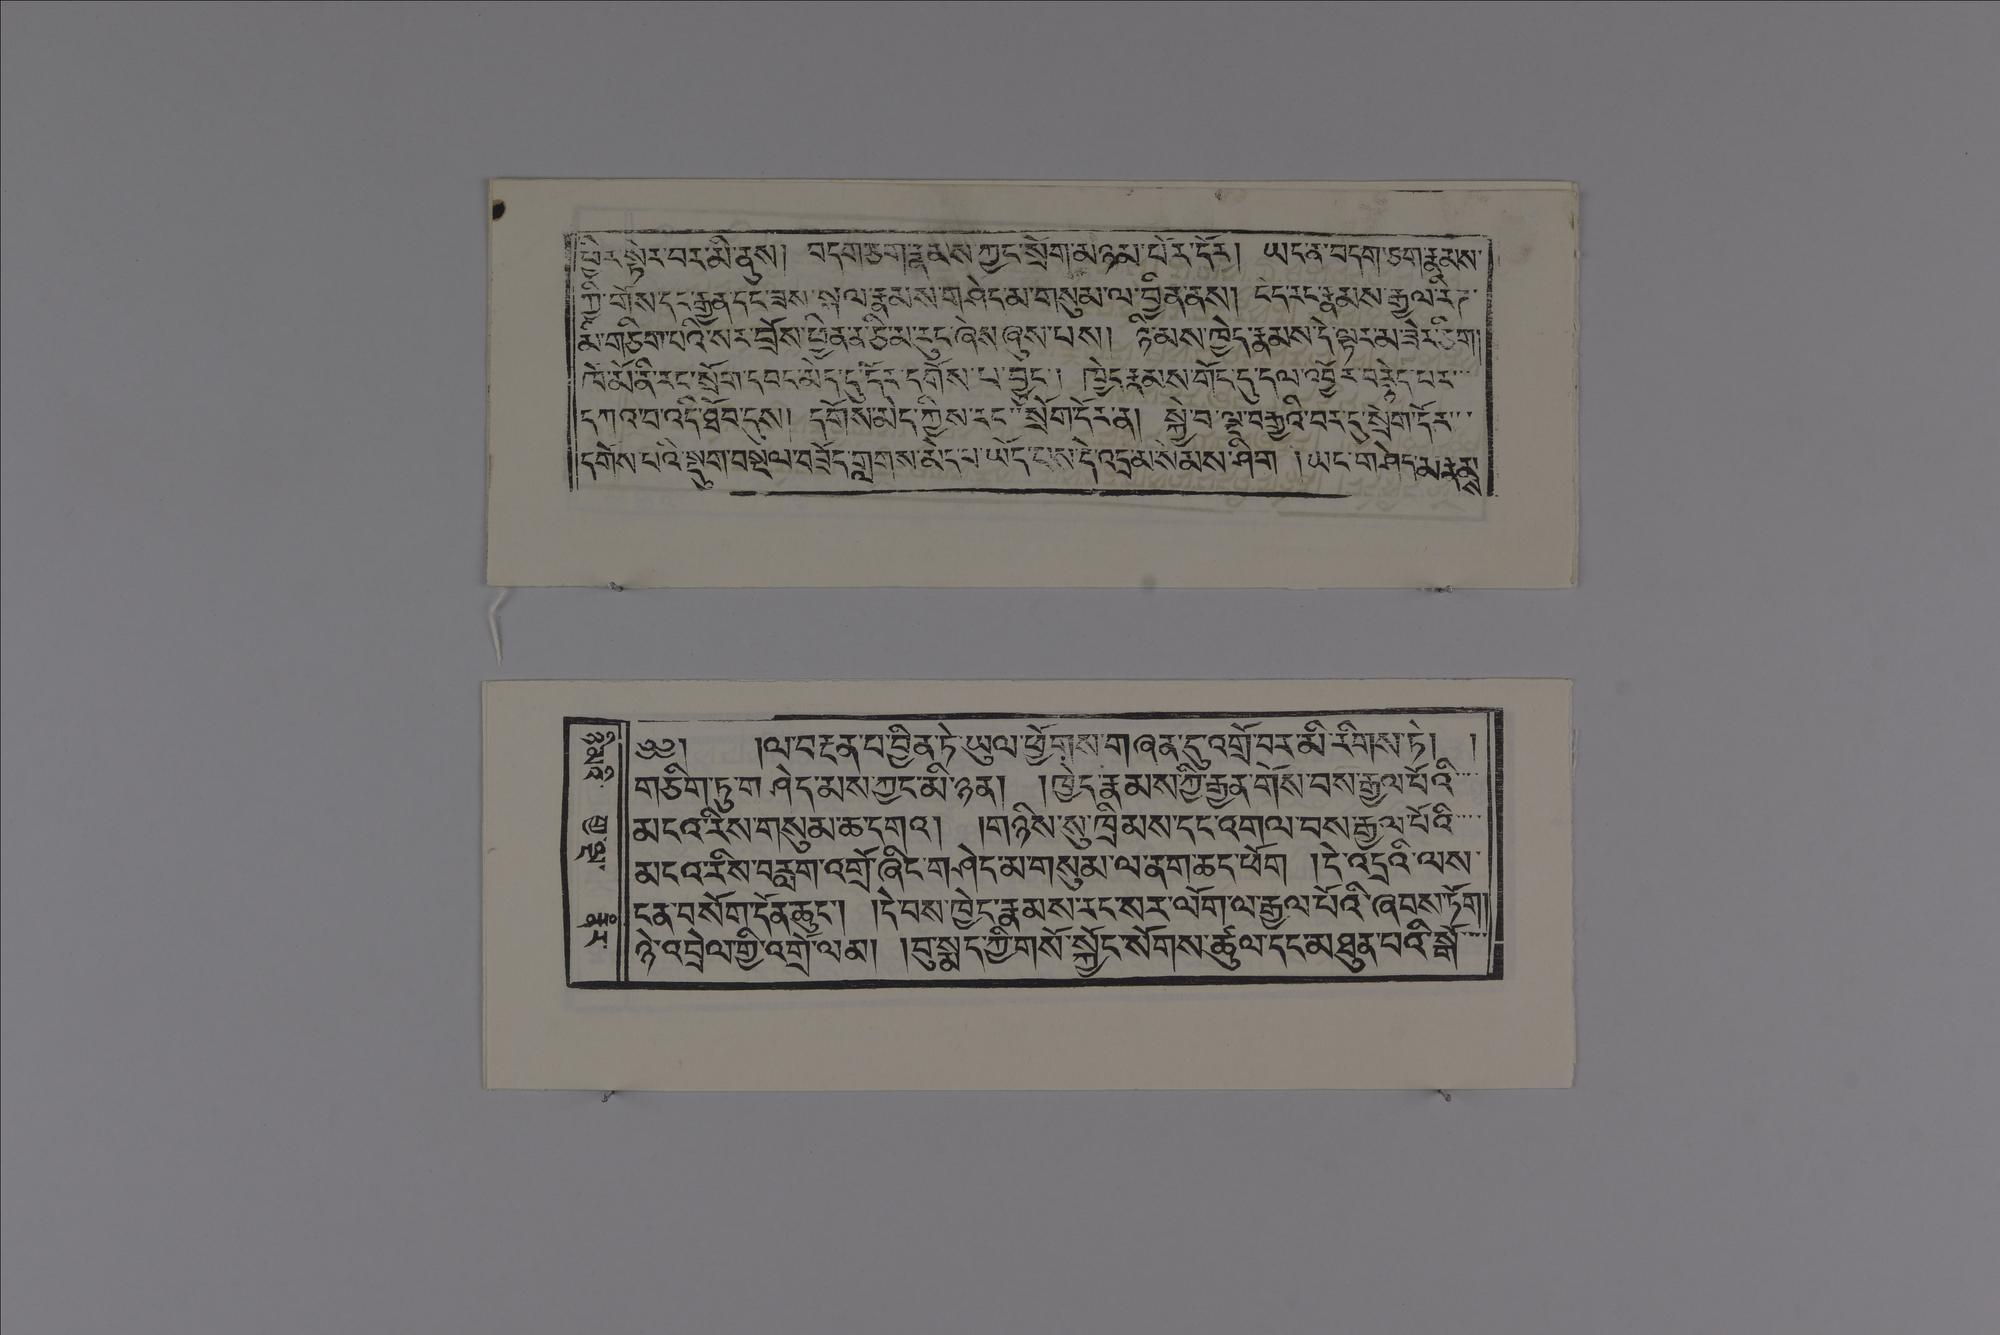 ཕྱིར་སྟེར་བར་མི་ནུས། བདག་ཅག་རྣམས་ཀྱང་སྲོག་མ་ཉམ་པོར་དོར། ཡང་ན་བདག་ཅག་རྣམས་
ཀྱི་གོས་དང་རྒྱན་དང་ཟས་སྐལ་རྣམས་གཤེད་མ་གསུམ་ལ་བྱིན་ནས། ངེད་རང་རྣམས་རྒྱལ་རི་ཏ་
མི་གཅིག་པའི་སར་བྲོས་ཕྱིན་ན་ཅི་མ་རུང་ཞེས་ཞུས་པས། ཏིང་མས་ཁྱེད་རྣམས་དེ་ལྟར་མ་ཟེར་ཅིག།
ཁོ་མོ་ནི་རང་སྲོག་དབང་མེད་དུ་དོར་དགོས་པ་བྱུང་། ཁྱེད་རྣམས་གོང་དུ་དལ་འབྱོར་བརྙེད་པར་
དཀའ་བ་འདི་ཐོབ་དུས། དགོས་མེད་ཀྱིས་རང་སྲོག་དོར་ན། སྐྱེ་བ་ལྔ་བརྒྱའི་བར་དུ་སྲོག་དོར་
དགོས་པའི་སྡུག་བསྔལ་བཟོད་གླགས་མེད་པ་ཡོད་པས་དེ་འདྲ་མ་སེམས་ཤིག །ཡང་གཤེད་མ་རྣམས
༄༅། །ལ་བརྟན་པ་བྱིན་ཏེ་ཡུལ་ཕྱོགས་གཞན་དུ་འགྲོ་བར་མི་རིགས་ཏེ། །
གཅིག་ཏུ་གཤེད་མས་ཀྱང་མི་ཉན། །ཁྱེད་རྣམས་ཀྱི་རྒྱན་གོས་བས་རྒྱལ་པོའི་
མངའ་རིས་གསུམ་ཆ་དགའ། །གཉིས་སུ་ཁྲིམས་དང་འགལ་བས་རྒྱལ་པོའི་
མངའ་རིས་བརླག་འགྲོ་ཞིང་གཤེད་མ་གསུམ་ལ་ནག་ཆད་ཕོག །དེ་འདྲའི་ལས་
ངན་བསོག་དོན་ཆུང་། །དེ་བས་ཁྱེད་རྣམས་རང་སར་ལོག་ལ་རྒྱལ་པོའི་ཞབས་ཏོག།
ཉེ་འབྲེལ་གྱི་འགྲོ་ལམ། །བུ་སྨད་ཀྱི་གསོ་སྐྱོང་སོགས་ཚུལ་དང་མཐུན་པའི་སྒོ་